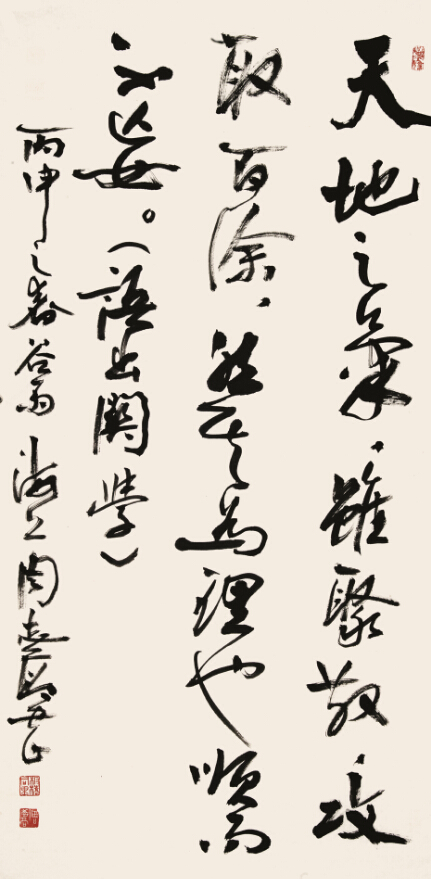 天地之氣、雖聚散、攻
取百涂、然其為理也順而
不妄。（語出關學）
丙申之春谷雨海上周志高